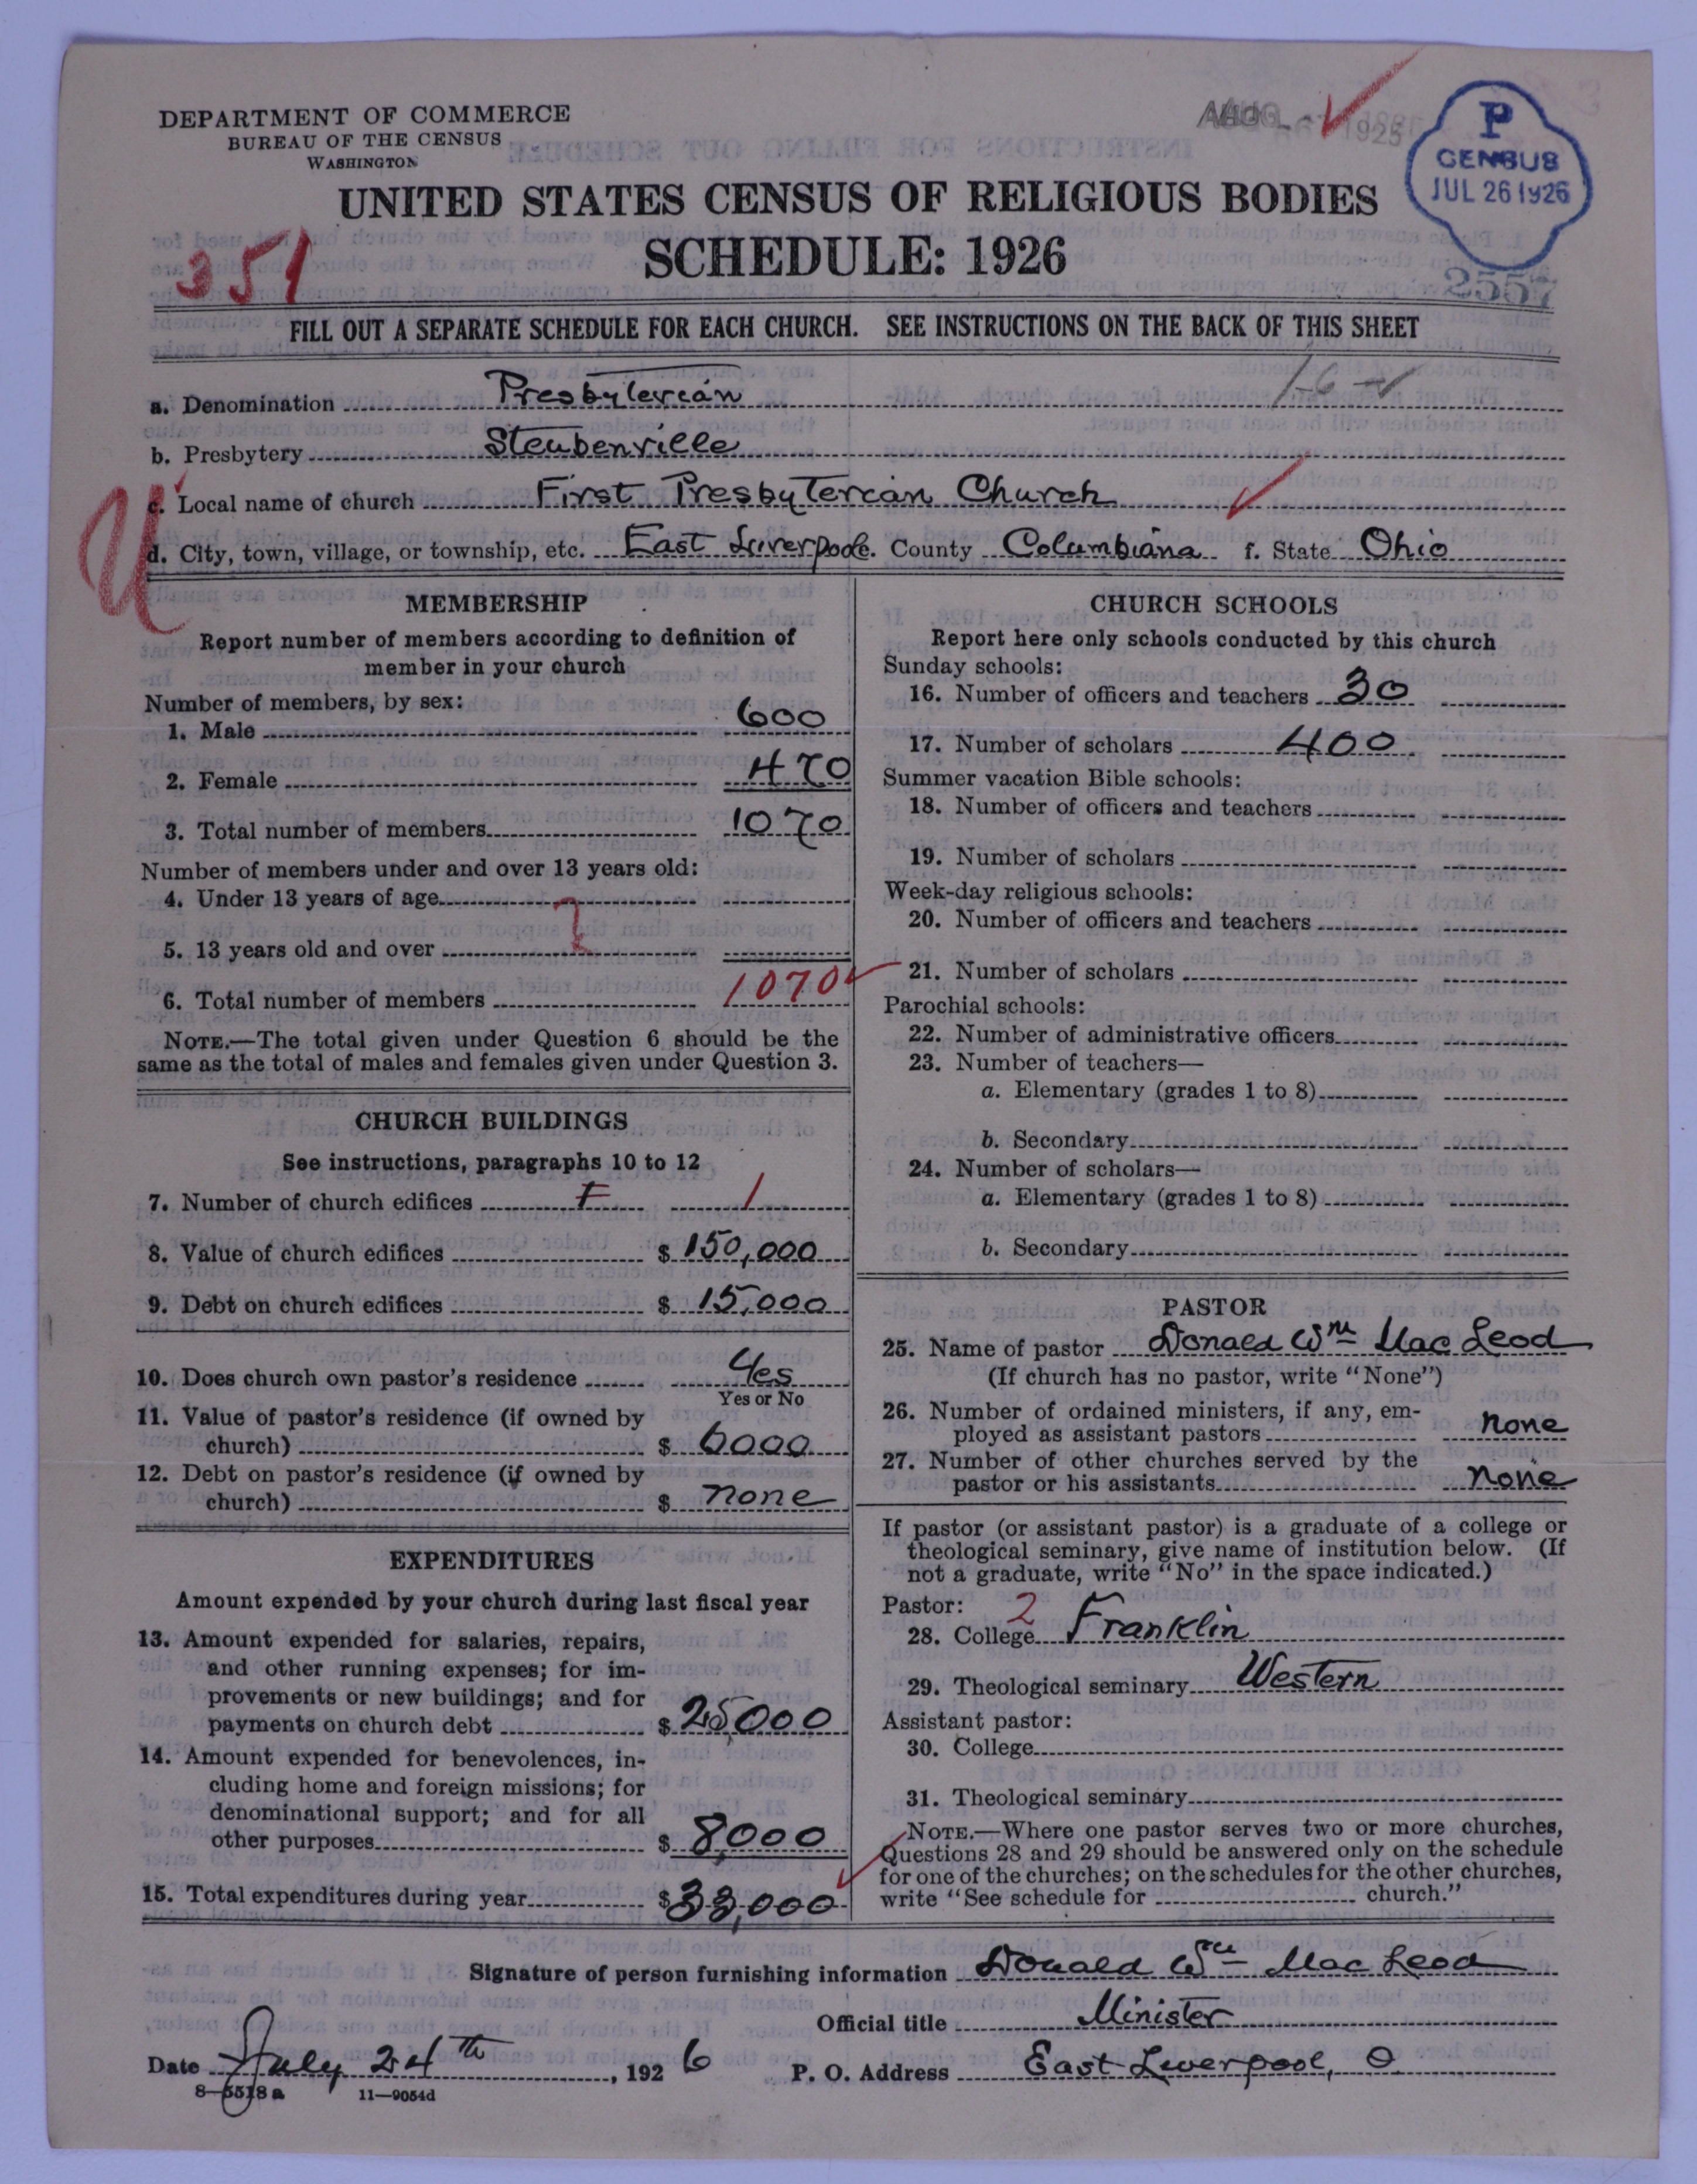 DEPARTMENT OF COMMERCE
BUREAU OF THE CENSUS
WASHINGTON
P
CENSUS
JUL 26 1926
UNITED STATES CENSUS OF RELIGIOUS BODIES
SCHEDULE: 1926
351
2557
FILL OUT A SEPARATE SCHEDULE FOR EACH CHURCH. SEE INSTRUCTIONS ON THE BACK OF THIS SHEET
a. Denomination Presbyterian
b. Presbytery Steubenville
c. Local name of church First Presbyterian Church
d. City, town, village, or township, etc. East Liverpool e. County Columbiana f. State Ohio
MEMBERSHIP
Report number of members according to definition of
member in your church
Number of members, by sex:
1. Male 600
2. Female 470
3. Total number of members 1070
Number of members under and over 13 years old:
4. Under 13 years of age
5. 13 years old and over
6. Total number of members 1070
NOTE.—The total given under Question 6 should be the
same as the total of males and females given under Question 3.
CHURCH BUILDINGS
See instructions, paragraphs 10 to 12
7. Number of church edifices 1
8. Value of church edifices $ 150,000
9. Debt on church edifices $ 15,000
10. Does church own pastor's residence Yes
Yes or No
11. Value of pastor's residence (if owned by
church) $ 6000
12. Debt on pastor's residence (if owned by
church) $ none
EXPENDITURES
Amount expended by your church during last fiscal year
13. Amount expended for salaries, repairs,
and other running expenses; for im-
provements or new buildings; and for
payments on church debt $ 25,000
14. Amount expended for benevolences, in-
cluding home and foreign missions; for
denominational support; and for all
other purposes $ 8000
15. Total expenditures during year $ 33,000
CHURCH SCHOOLS
Report here only schools conducted by this church
Sunday schools:
16. Number of officers and teachers 30
17. Number of scholars 400
Summer vacation Bible schools:
18. Number of officers and teachers
19. Number of scholars
Week-day religious schools:
20. Number of officers and teachers
21. Number of scholars
Parochial schools:
22. Number of administrative officers
23. Number of teachers—
a. Elementary (grades 1 to 8)
b. Secondary
24. Number of scholars—
a. Elementary (grades 1 to 8)
b. Secondary
PASTOR
25. Name of pastor Donald Wm MacLeod
(If church has no pastor, write "None")
26. Number of ordained ministers, if any, em-
ployed as assistant pastors none
27. Number of other churches served by the
pastor or his assistants none
If pastor (or assistant pastor) is a graduate of a college or
theological seminary, give name of institution below. (If
not a graduate, write "No" in the space indicated.)
Pastor: 2
28. College Franklin
29. Theological seminary Western
Assistant pastor:
30. College
31. Theological seminary
NOTE.—Where one pastor serves two or more churches,
Questions 28 and 29 should be answered only on the schedule
for one of the churches; on the schedules for the other churches,
write "See schedule for church."
Signature of person furnishing information Donald Wm MacLeod
Official title Minister
Date July 24th, 1926 P. O. Address East Liverpool, O
8—5518 a 11—9054d